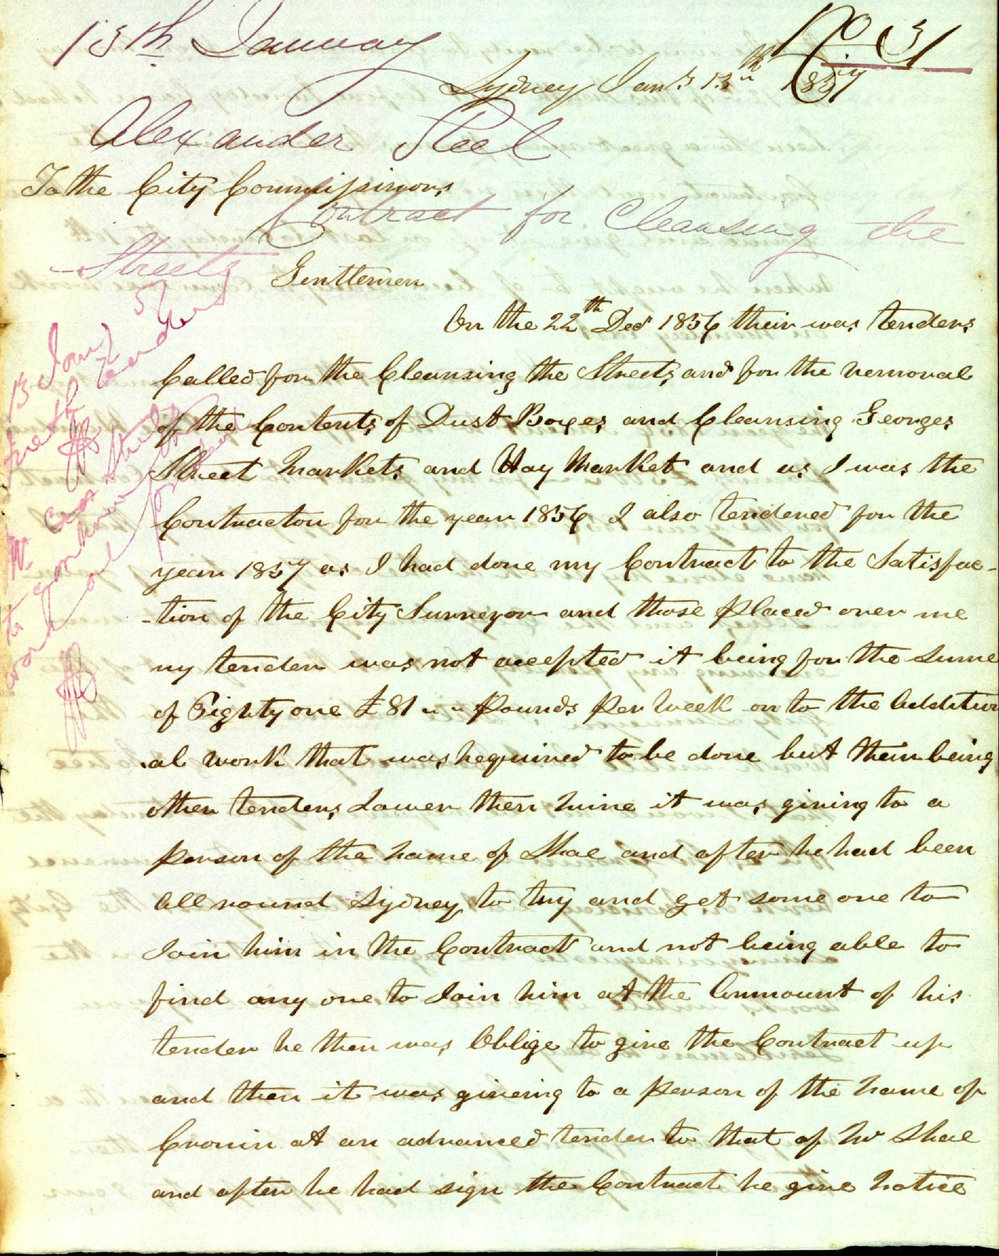 13th January
No 31
Sydney Jany 13th 1857
Alexander Steel
To the City Commissinors
Contract for Cleansing the
Streets
Gentlemen
On the 22th Decr 1856 their was tenders
Called for the Cleansing the Streets and for the removal
of the Contents of Dust Boxes and Cleansing Georges
Street Markets and Hay Market and as I was the
Contractor for the year 1856 I also tendered for the
year 1857 as I had done my Contract to the Satisfac-
-tion of the City Surveyor and those placed over me
my tender was not accepted it being for the Sume
of Eighty one £81 " " Pounds Per Week on to the addition
al work that was required to be done but their being
other tenders Lower then Mine it was giving to a
person of the name of Shae and after he had been
all round Sydney to try and get some one to
Join him in the Contract and not being able to
find any one to Join him at the Ammount of his
tender he then was Oblige to give the Contract up
and then it was giveing to a person of the name of
Cronin at an advanced tender to that of Mr Shae
and after he had sign the Contract he give notice
13 Jany 57
fresh tenders